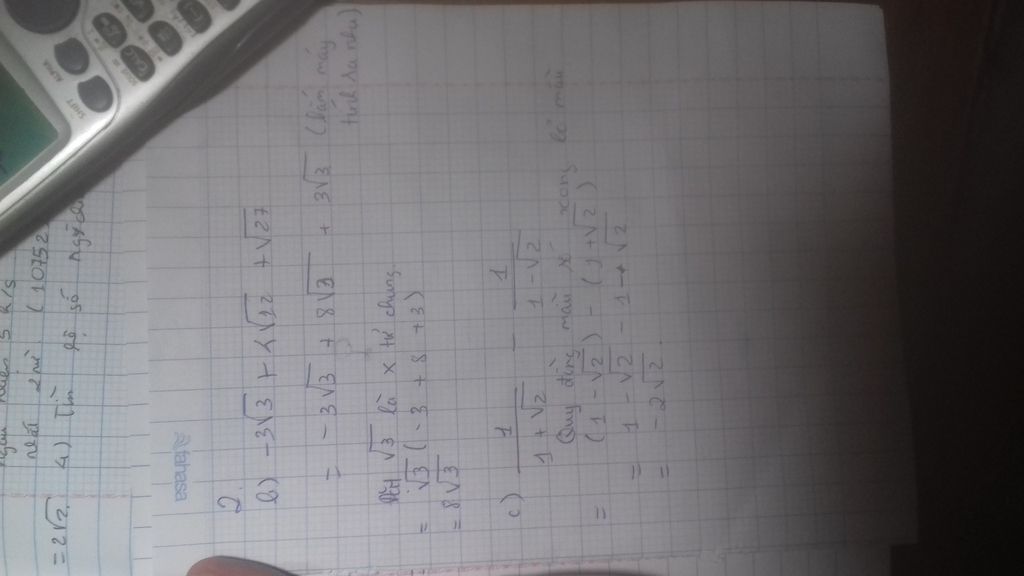 SHIFT
ALPHA
(10752
4) Tìm số
= 2√2
Atanasa
2.
b) -3√3 + 4√12 + √27
= -3√3 + 8√3 + 3√3 (bấm máy
tính ra như)
√3 là x tử chung
= √3 (-3 + 8 + 3)
= 8√3
c) 1/(1 + √2) - 1/(1 - √2)
Quy đồng mẫu số xong bỏ mẫu
= (1 - √2) - (1 + √2)
= 1 - √2 - 1 - √2
= -2√2.